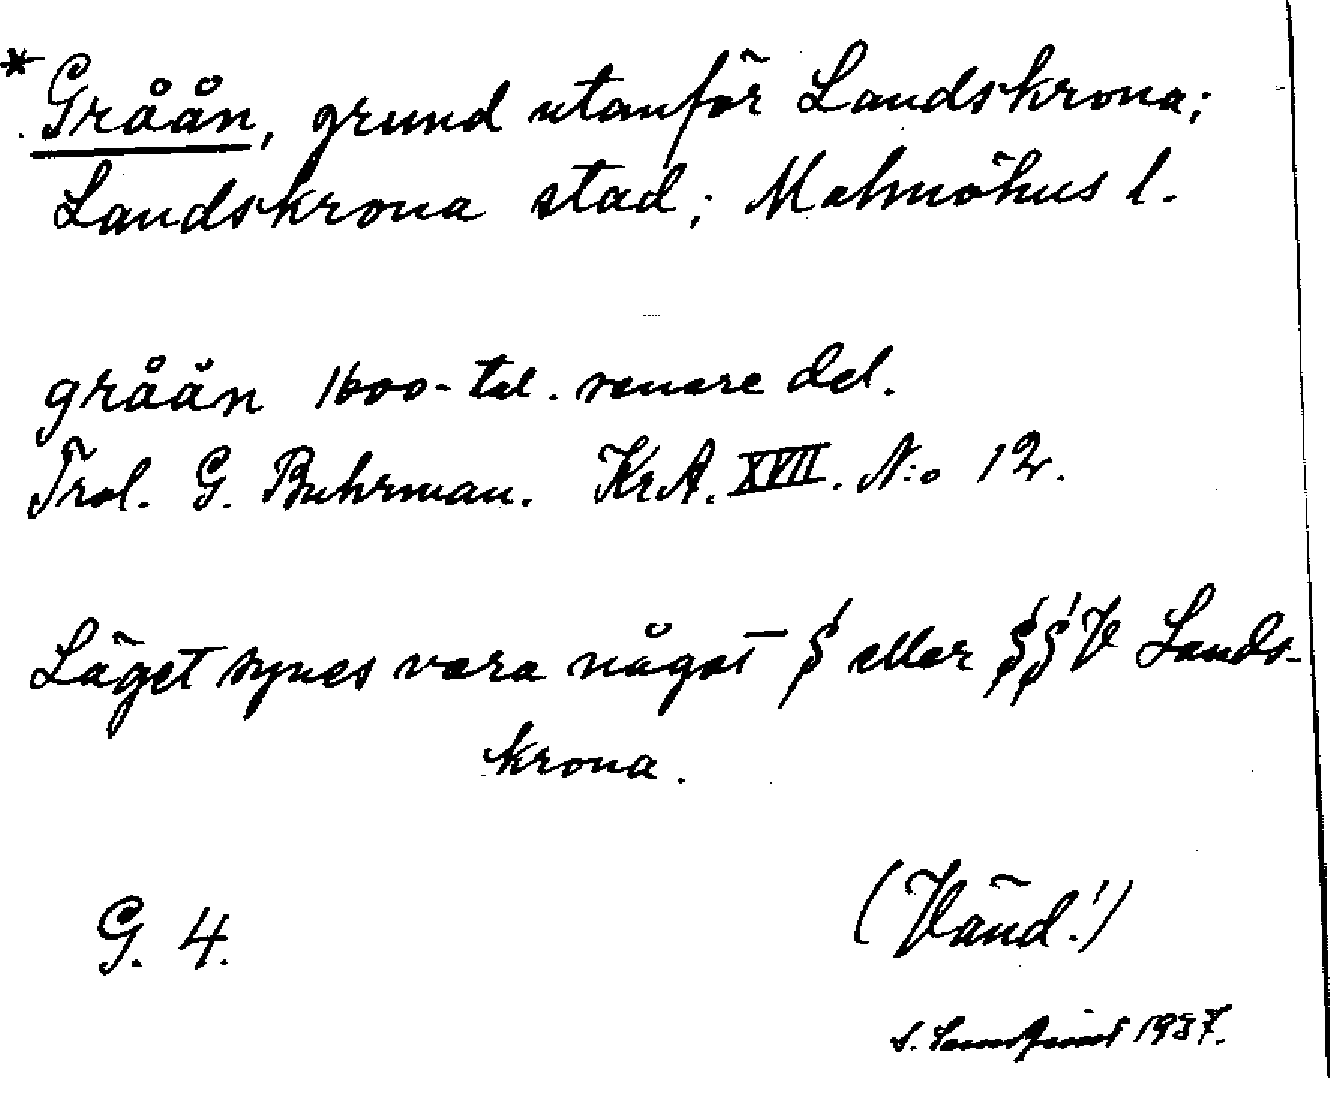 * Gråån, grund utanför Landskrona;
Landskrona stad; Malmöhus l.
gråån 1600-tal. senare del.
Trol. G. Buhrman. KrA. XVII. N:o 12.
Läget synes vara något S eller SSV Lands-
krona.
G. 4.
(Vänd!)
S. 1937.